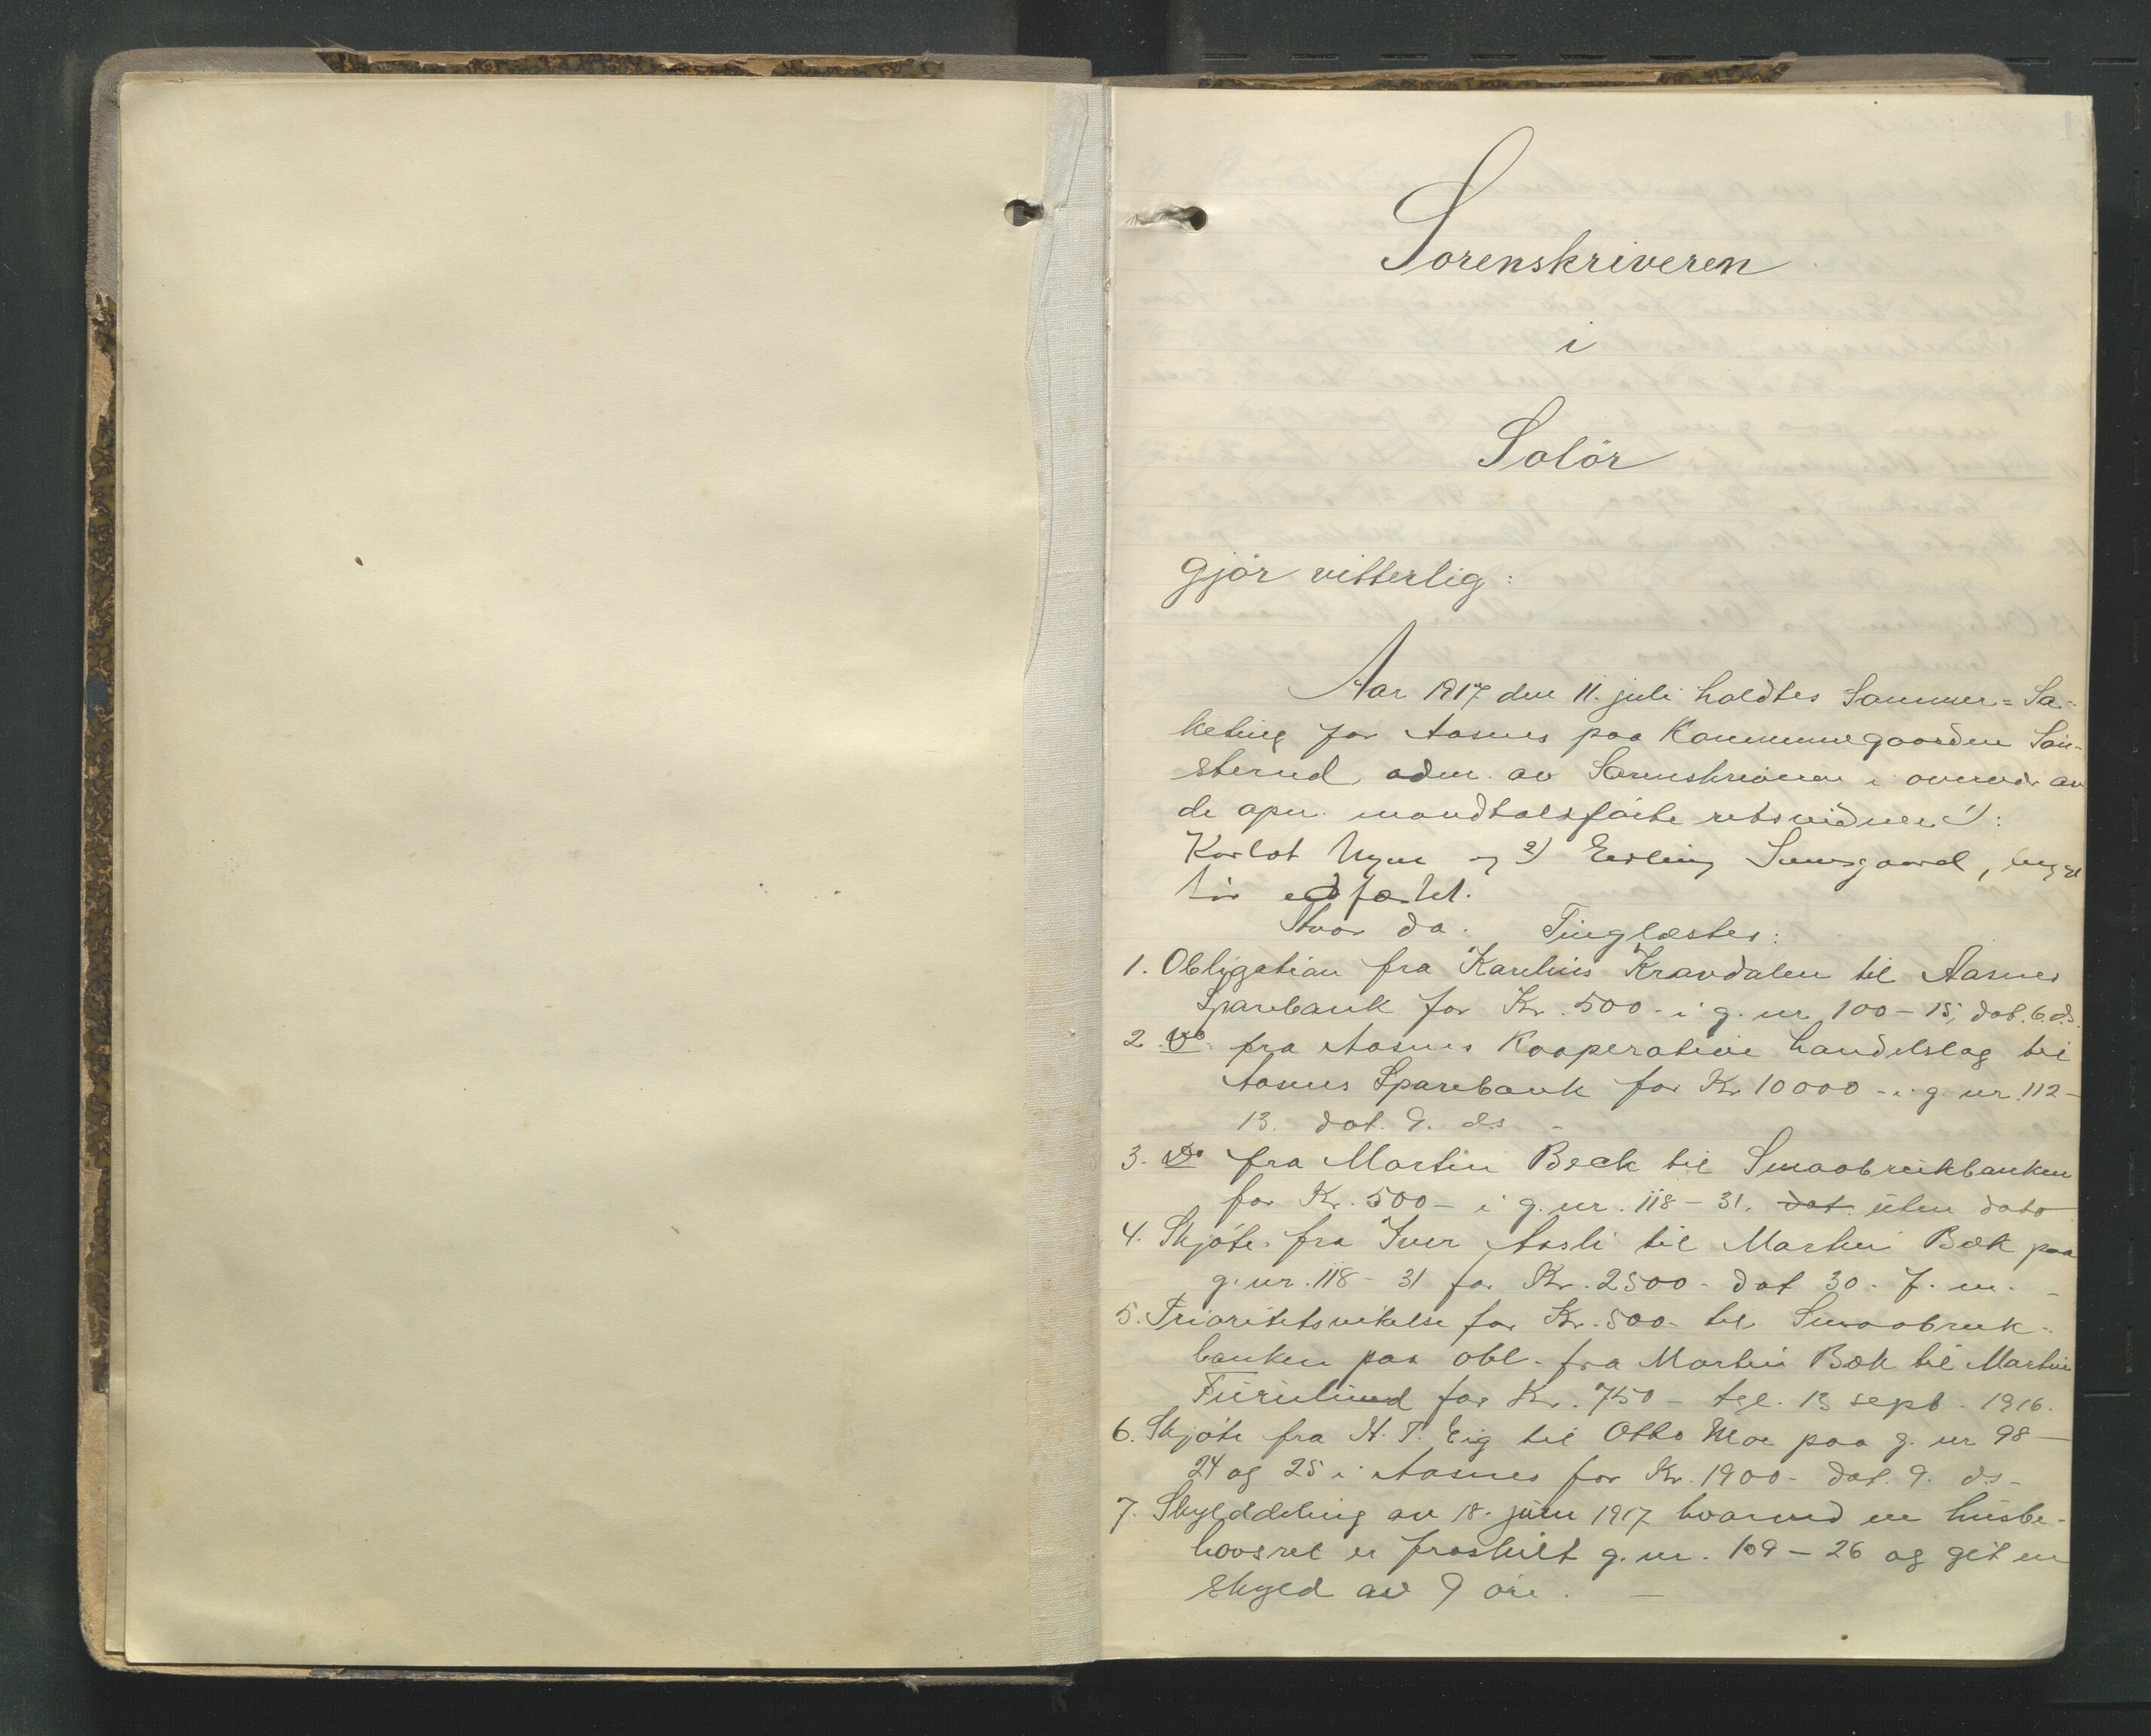 Sorenskriveren
i
Solör
gjör vitterlig:
Aar 1917 den 11. juli holdtes Sommer=Sa=
keting for Aasnes paa Kommunegaarden Sön-
sterud, adm. av Sorenskriveren i overvær av
de opn. mandtalsførte retsvidner 1):
Karlot og 2) Erling
edfæstet.
Hvor da: Tinglæstes:
1. Obligation fra Karelius Kravdalen til Aasnes
Sparebank for Kr. 500 - i g. nr. 100 - 15, dat. 6. ds.
2. Do fra Aasnes Kooperative handelslag til
Aasnes Sparebank for Kr 10000 - i g. nr. 112 -
13. dat. 9. ds -
3. Do fra Martin Bæck til Smaabrukbanken
for Kr. 500 - i g. nr. 118 - 31. dat. uten dato
4. Skjöte fra Iver Aasli til Martin Bæk paa
g. nr. 118 - 31 for Kr. 2500 - dat 30. f. m. -
5. Prioritetsvikelse for Kr. 500 - til Smaabruk-
banken paa obl. fra Martin Bæk til Martin
Furulund for Kr. 750 - tgl. 13 sept. 1916.
6. Skjöte fra H. T. Eig til Otto Moe paa g. nr 98 -
24 og 25 i Aasnes for Kr. 1900 - dat. 9. ds -
7. Skylddeling av 18. juni 1917 hvorved en husbe-
hovsret er fraskilt g. nr. 109 - 26 og git en
skyld av 9 öre. -